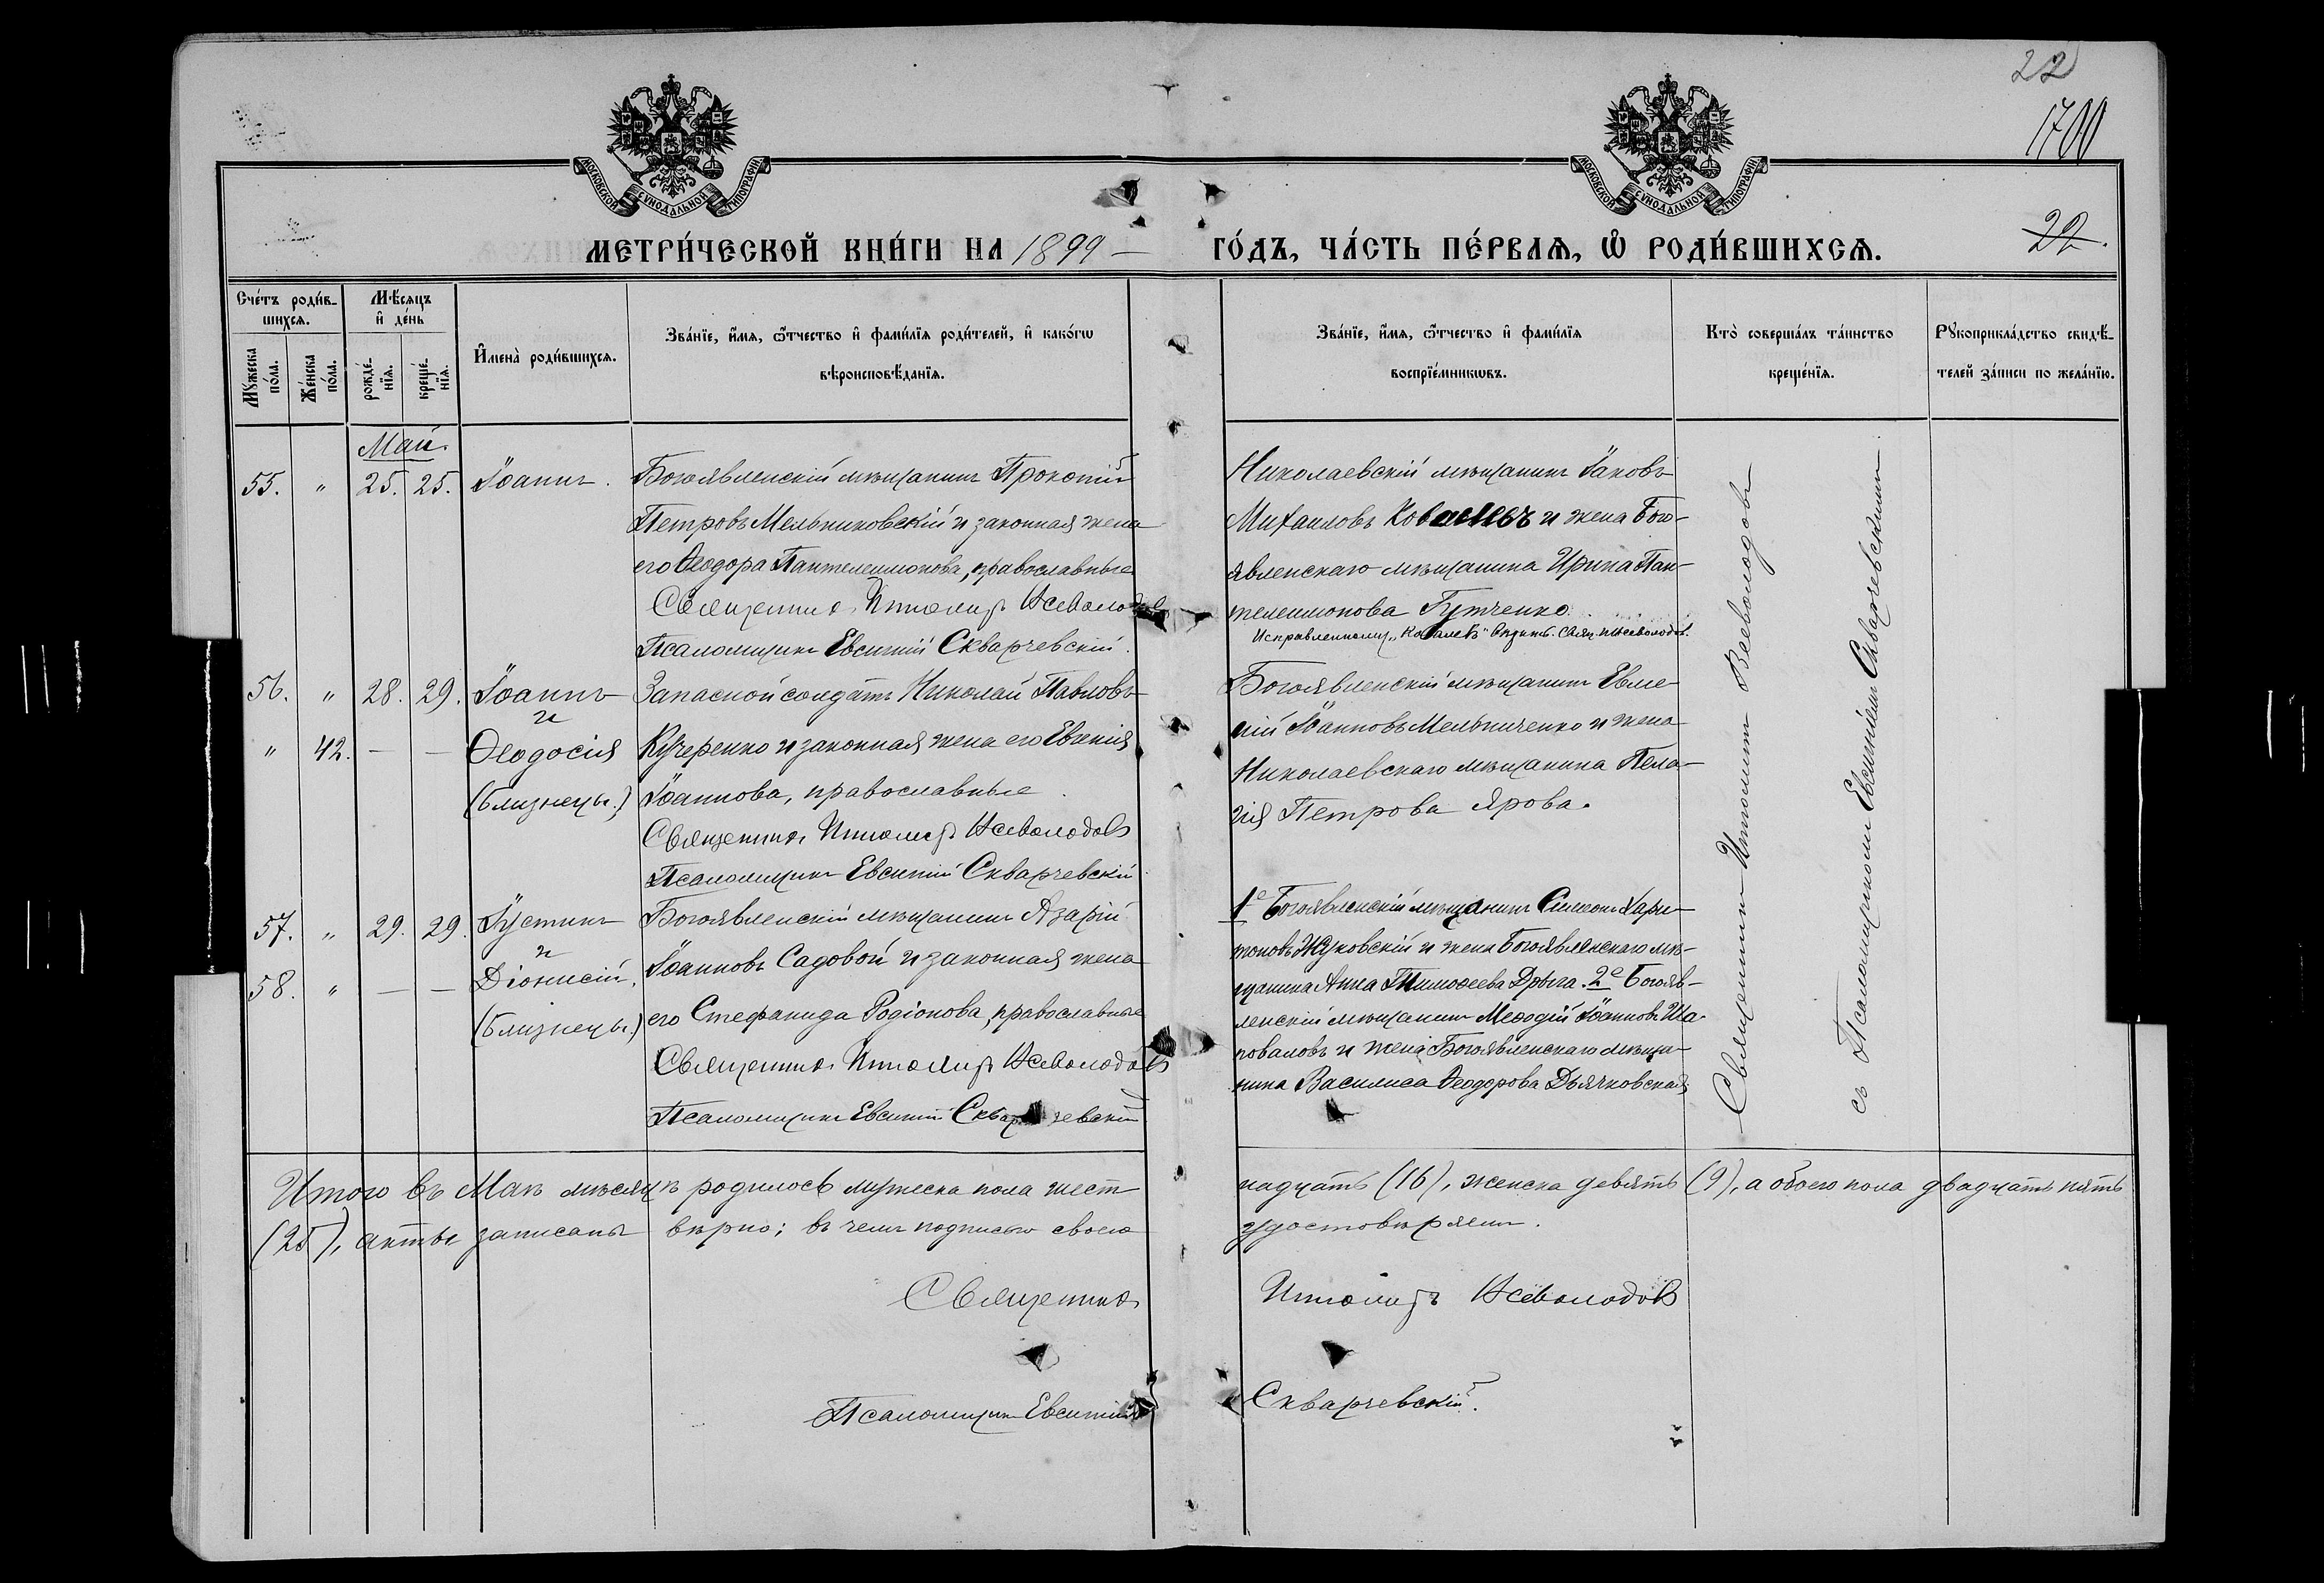 22
1700
МОСКОВСКОЙ СѴНОДАЛЬНОЙ ТИПОГРАФІИ
МОСКОВСКОЙ СѴНОДАЛЬНОЙ ТИПОГРАФІИ
МЕТРИ́ЧЕСКОЙ КНИ́ГИ НА 1899 — ГО́ДЪ, ЧА́СТЬ ПЕ́РВАѦ, Ѡ҆ РОДИ́ВШИХСѦ.
22.
Сче́тъ роди́в-
шихсѧ.
Мꙋ́жеска по́ла.
Же́нска по́ла.
Мѣ́сѧцъ
и҆ де́нь
рожде́-
нїѧ.
креще́-
нїѧ.
И҆мена̀ роди́вшихсѧ.
Зва́нїе, и҆́мѧ, ѻ҆́тчество и҆ фами́лїѧ роди́телей, и҆ како́гѡ
вѣроисповѣ́данїѧ.
Зва́нїе, и҆́мѧ, ѻ҆́тчество и҆ фами́лїѧ
воспрїе́мникѡвъ.
Кто̀ соверша́лъ та́инство
креще́нїѧ.
Рꙋкоприкла́дство свидѣ́-
телей за́писи по жела́нїю.
Май.
55. " 25. 25. Іоаннъ.
Богоявленскій мѣщанинъ Прокопій
Петровъ Мельниковскій и законная жена
его Ѳеодора Пантелеимонова, православные
Священникъ Иннолитъ Всеволодовъ
Псаломщикъ Евсигній Скварчевскій.
Николаевскій мѣщанинъ Іаковъ
Михаиловъ Ковалевъ и жена Бого-
явленскаго мѣщанина Ирина Пан-
телеимонова Гутченко.
Исправленному "Ковалевъ" вѣрить. Свящ. И. Всеволодовъ.
56. " 28. 29. Іоаннъ
и
" 42. — — Ѳеодосія
(близнецы.)
Запасной солдатъ Николай Павловъ
Кучеренко и законная жена его Евгенія
Іоаннова, православные.
Священникъ Ипполитъ Всеволодовъ
Псаломщикъ Евсигній Скварчевскій
Богоявленскій мѣщанинъ Евме-
ній Іоанновъ Мельниченко и жена
Николаевскаго мѣщанина Пела-
гія Петрова Ярова.
57. " 29. 29. Іустинъ
и
58. " — — Діонисій.
(близнецы.)
Богоявленскій мѣщанинъ Азарій
Іоанновъ Садовой и законная жена
его Стефанида Родіонова, православные
Священникъ Ипполитъ Всеволодовъ
Псаломщикъ Евсигній Скварчевскій
1е Богоявленскій мѣщанинъ Симеонъ Хари-
тоновъ Жуковскій и жена Богоявленскаго мѣ-
щанина Анна Тимоѳеева Дрыга. 2е Богояв-
ленскій мѣщанинъ Меѳодій Іоанновъ Ша-
поваловъ и жена Богоявленскаго мѣща-
нина Василиса Ѳеодорова Дьячковская
Священникъ Ипполитъ Всеволодовъ
съ Псаломщикомъ Евсигніемъ Скварчевскимъ.
Итого въ Маѣ мѣсяцѣ родилось мужеска пола шест-
надцать (16), женска девять (9), а обоего пола двадцать пять
(25), акты записаны вѣрно; въ чемъ подписью своею
удостовѣряемъ.
Священникъ Ипполитъ Всеволодовъ
Псаломщикъ Евсигній Скварчевскій.